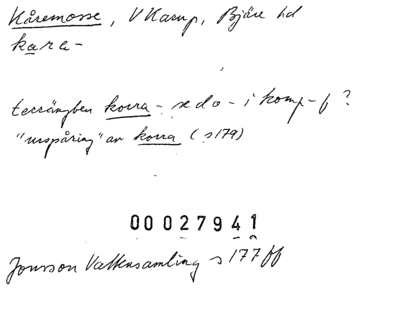 Kåremosse, V Karup, Bjäre hd
kara-
terrängben korra- se do - i komp-f?
"urspåring" av korra (s 179)
00027941
Jonsson Vattensamling s 177 ff